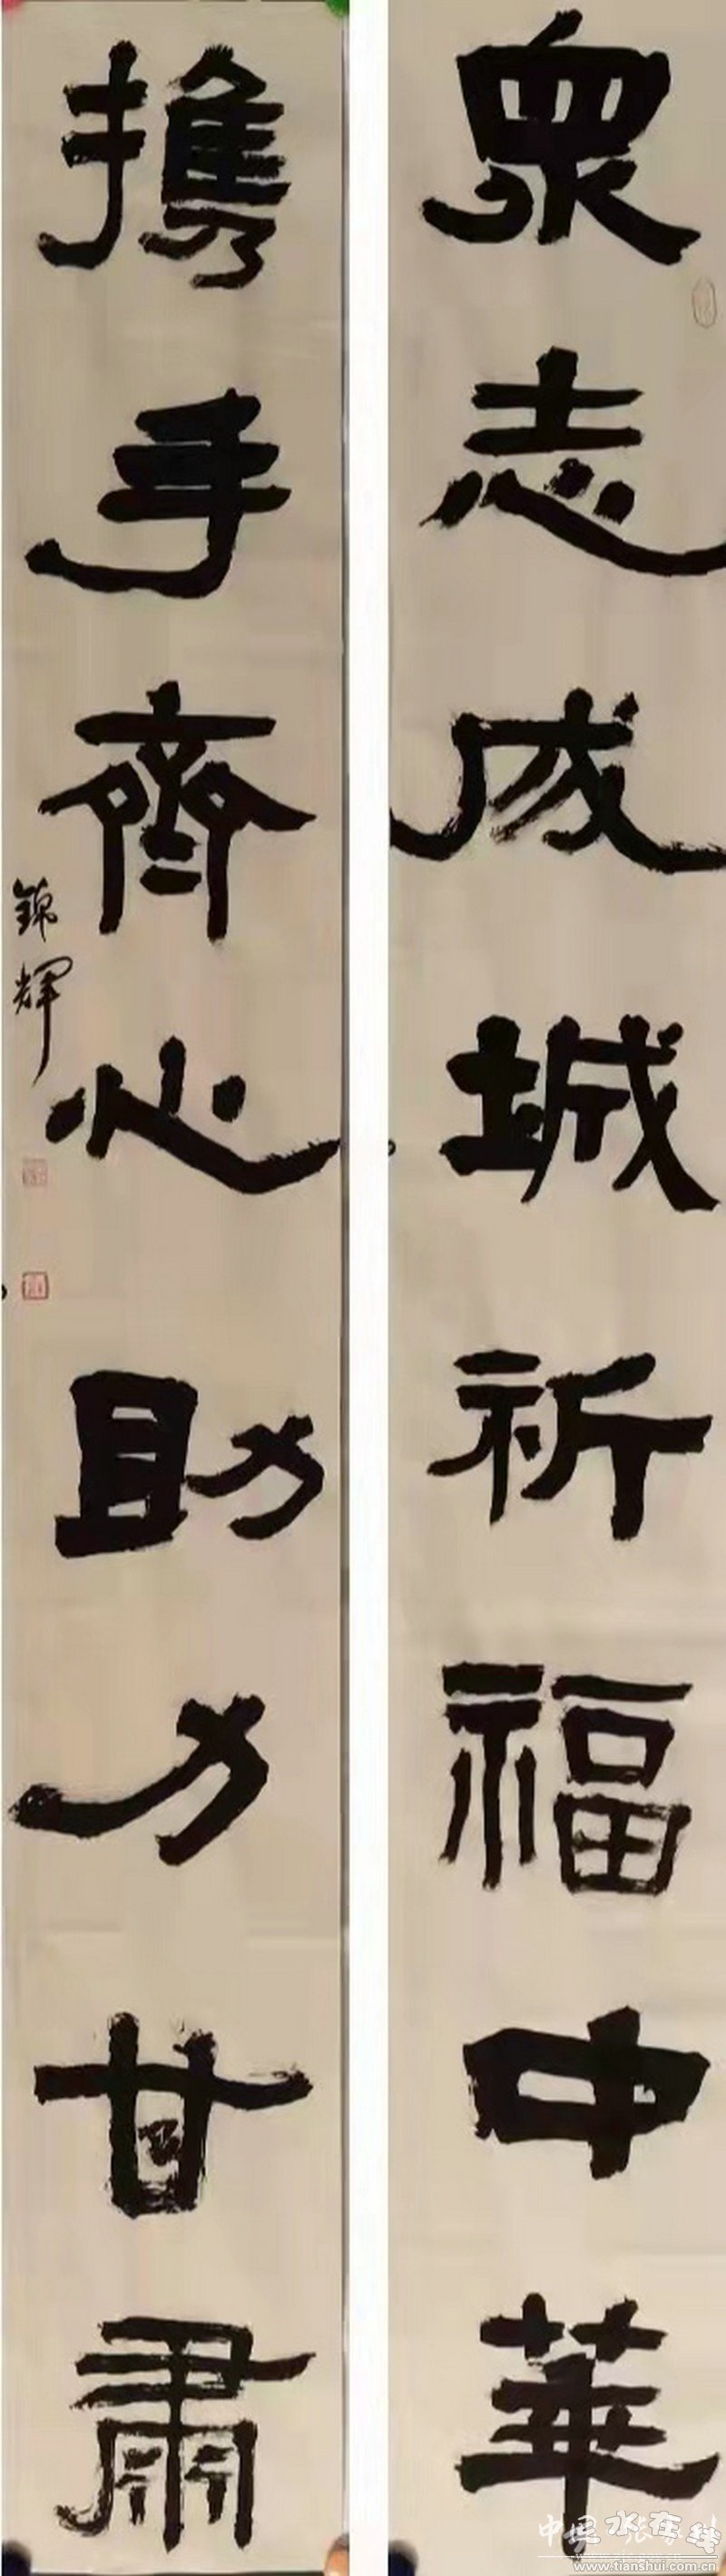 衆志成城祈福中華
攜手齊心助力甘肅
錦輝
www.tianshui.com.cn